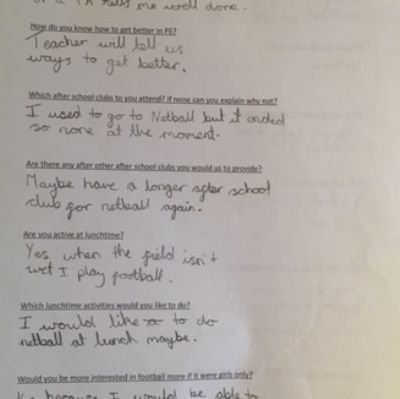 or a TA tells me well done.
How do you know how to get better in PE?
Teacher will tell us
ways to get better.
Which after school clubs to you attend? If none can you explain why not?
I used to go to Netball but it ended
so none at the moment.
Are there any after other after school clubs you would us to provide?
Maybe have a longer after school
club for netball again.
Are you active at lunchtime?
Yes when the field isn't
wet I play football.
Which lunchtime activities would you like to do?
I would like to do
netball at lunch maybe.
Would you be more interested in football more if it were girls only?
because I would be able to